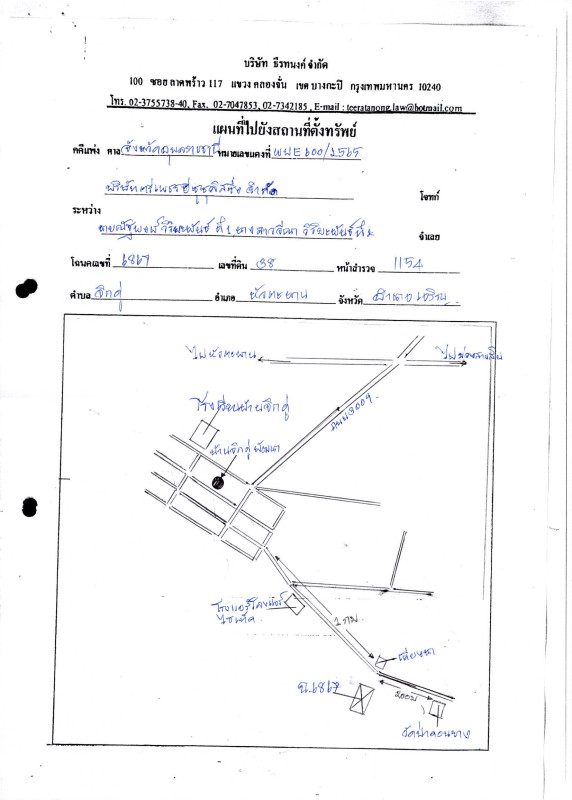 บริษัท ธีรทนงค์ จำกัด
100 ซอย ลาดพร้าว 117 แขวง คลองจั่น เขต บางกะปิ กรุงเทพมหานคร 10240
โทร. 02-3755738-40, Fax. 02-7047853, 02-7342185 , E-mail : teeratanong.law@hotmail.com
แผนที่ไปยังสถานที่ตั้งทรัพย์
คดีแพ่ง ศาล จังหวัดอุบลราชธานี หมายเลขแดงที่ ผบE600/2565
จำกัด โจทก์
ระหว่าง
ที่ 1 นางสาว ที่ 2 จำเลย
โฉนดเลขที่ 6867 เลขที่ดิน 38 หน้าสำรวจ 1154
ตำบล จิกดู่ อำเภอ หัวตะพาน จังหวัด อำนาจเจริญ
ไปหัวตะพาน
ไปม่วงสามสิบ
ถนน3009
โรงเรียนบ้านจิกดู่
บ้านจิกดู่ พัฒนา
1 กม
ฉ.6867
200ม
วัดป่าดอนขวาง